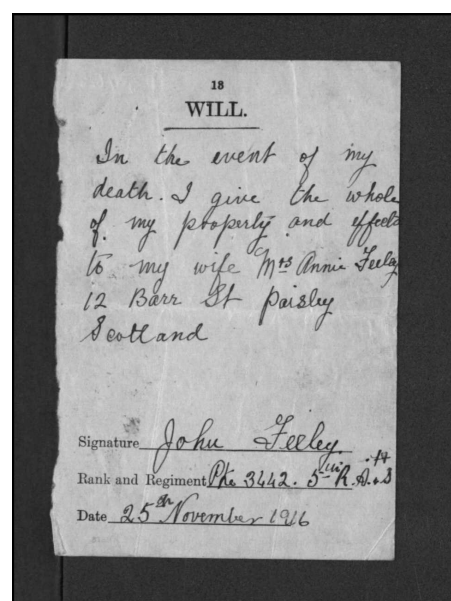 13
WILL.
In the event of my
death. I give the whole
of my property and effects
to my wife Mrs Annie Feeley
12 Barr St Paisley
Scotland
Signature John Feeley.
Rank and Regiment Pte 3442. 5th R.A.&S H
Date 25th November 1916